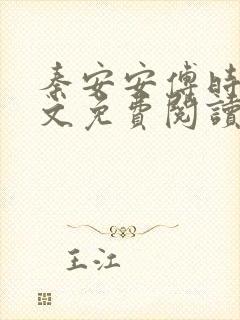 秦安安傅時
文免費閱讀
王江